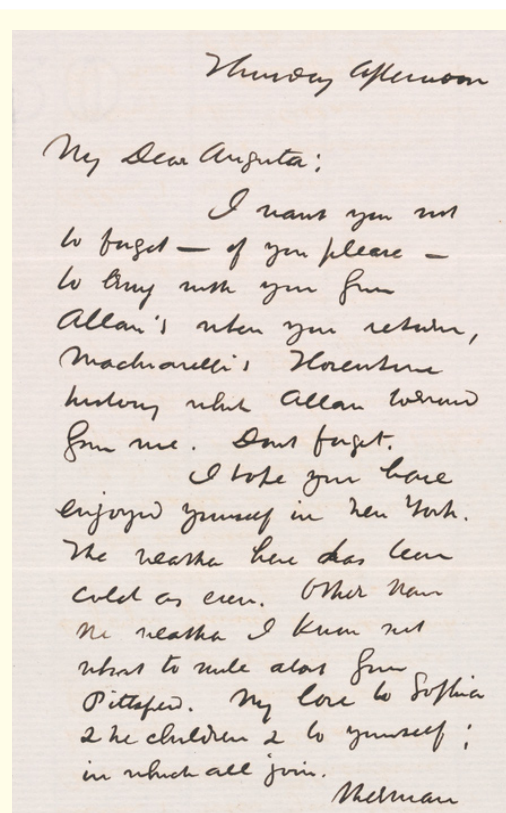 Thursday Afternoon
My Dear Augusta:
I want you not
to forget — if you please —
to bring with you from
Allan's when you return,
Machiavelli's Florentine
history which Allan borrowed
from me. Dont forget.
I hope you have
enjoyed yourself in New York.
The weather here has been
cold as ever. Other than
the weather I know not
what to write about from
Pittsfield. My love to Sophia
& the children & to yourself;
in which all join.
Herman